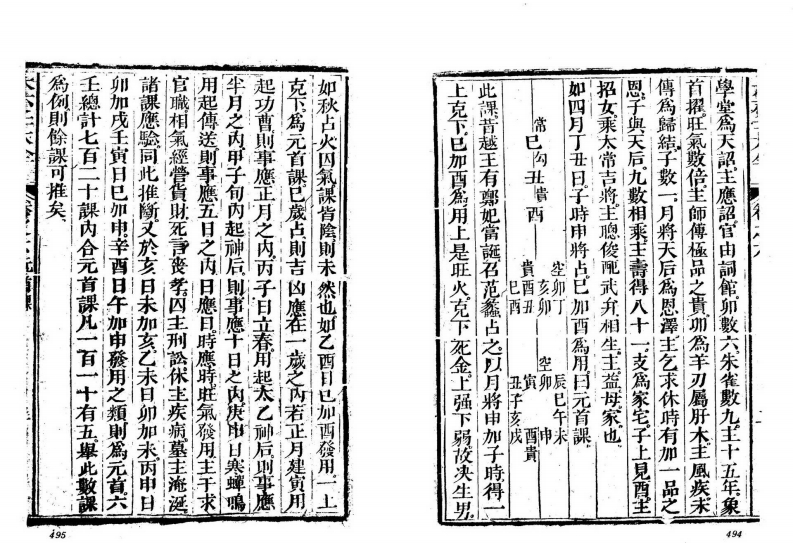 學堂爲天詔主應詔官由詞館卯數六朱雀數九主十五年象
首擢旺氣數倍主師傳極品之貴卯爲羊刃屬肝木主風疾未
傳爲歸結子數一月將天后爲恩澤主乞求休時有加一品之
恩子與天后九數相乘主壽得八十一支爲家宅子上見酉主
招女乘太常吉將主聰俊配武弁相生主益母家也
如四月丁丑日子時申將占巳加酉爲用曰元首課
常 勾 貴
巳 丑 酉
貴 貴
酉 酉 巳
丑 酉
空
卯 亥 卯
丁 卯
空
卯 寅
申 酉 貴
辰 巳 午 未
丑 子 亥 戌
此課昔越王有鄭妃當誕召范蠡占之以月將申加子時得一
上克下巳加酉爲用上是旺火克下死金上强下弱故决生男
494
如秋占火囚氣課皆陰則未然也如乙酉日巳加酉發用一上
克下爲元首課巳歲占則吉凶應在一歲之內若正月建寅用
起功曹則事應正月之內丙子日立春用起太乙神后則事應
半月之內甲子旬內起神后則事應十日之內庚申日寒蟬鳴
用起傳送則事應五日之內日應日時應時旺氣發用主干求
官職相氣經營貨財死言喪孝囚主刑訟休主疾病墓主淹涎
諸課應驗同此推斷又於亥日未加亥乙未日卯加未丙申日
卯加戌壬寅日巳加申辛酉日午加申發用之類則爲元首六
壬總計七百二十課內合元首課凡一百一十有五舉此數課
爲例則餘課可推矣
495